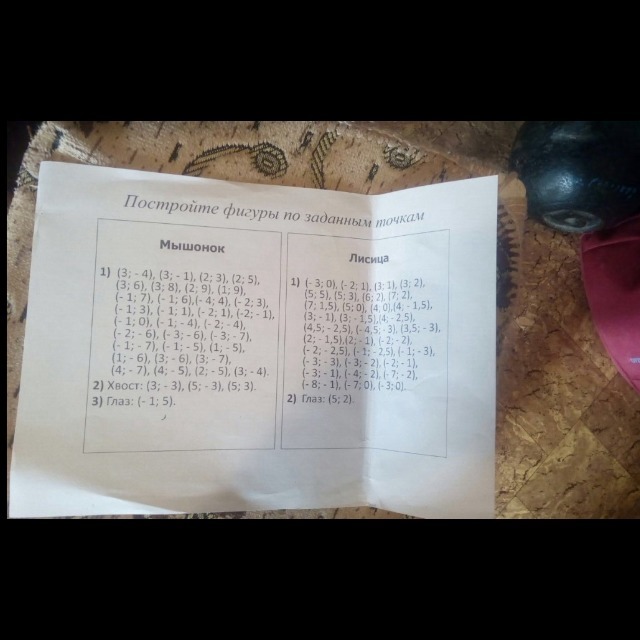 Постройте фигуры по заданным точкам
Мышонок
1) (3; - 4), (3; - 1), (2; 3), (2; 5),
(3; 6), (3; 8), (2; 9), (1; 9),
(- 1; 7), (- 1; 6),(- 4; 4), (- 2; 3),
(- 1; 3), (- 1; 1), (- 2; 1), (-2; - 1),
(- 1; 0), (- 1; - 4), (- 2; - 4),
(- 2; - 6), (- 3; - 6), (- 3; - 7),
(- 1; - 7), (- 1; - 5), (1; - 5),
(1; - 6), (3; - 6), (3; - 7),
(4; - 7), (4; - 5), (2; - 5), (3; - 4).
2) Хвост: (3; - 3), (5; - 3), (5; 3).
3) Глаз: (- 1; 5).
Лисица
1) (- 3; 0), (- 2; 1), (3; 1), (3; 2),
(5; 5), (5; 3), (6; 2), (7; 2),
(7; 1,5), (5; 0), (4; 0),(4; - 1,5),
(3; - 1), (3; - 1,5),(4; - 2,5),
(4,5; - 2,5), (- 4,5; - 3), (3,5; - 3),
(2; - 1,5), (2; - 1), (- 2; - 2),
(- 2; - 2,5), (- 1; - 2,5), (- 1; - 3),
(- 3; - 3), (- 3; - 2), (- 2; - 1),
(- 3; - 1), (- 4; - 2), (- 7; - 2),
(- 8; - 1), (- 7; 0), (-3; 0).
2) Глаз: (5; 2).